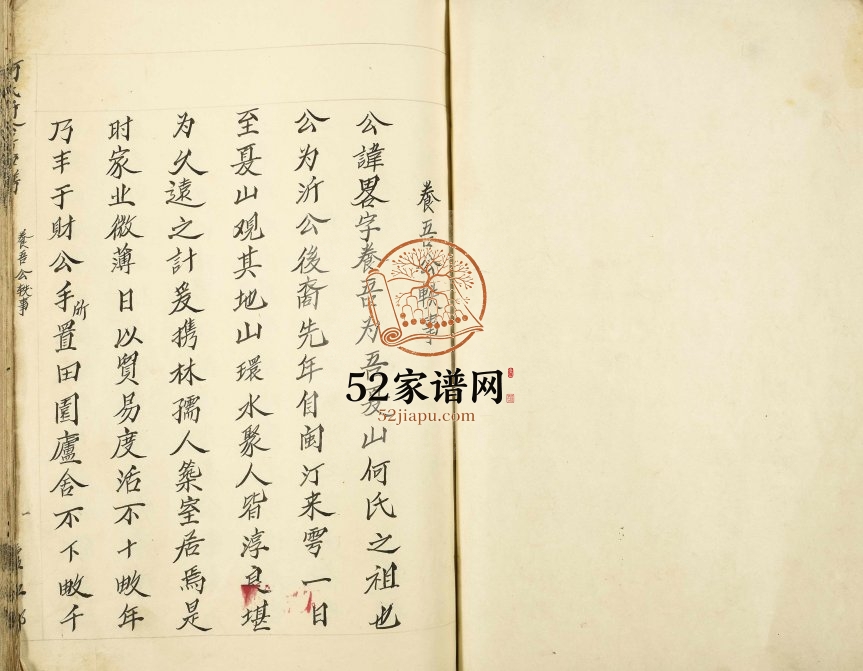 養吾公軼事
公諱畧字養吾为吾夏山何氏之祖也
公为沂公後裔先年自闽汀来雩一日
至夏山观其地山環水聚人皆淳良堪
为久遠之計爰携林孺人築室居焉是
时家业微薄日以貿易度活不十畝年
乃丰于財公手所置田園廬舍不下畝千
養吾公軼事
一
52家谱网
52jiapu.com